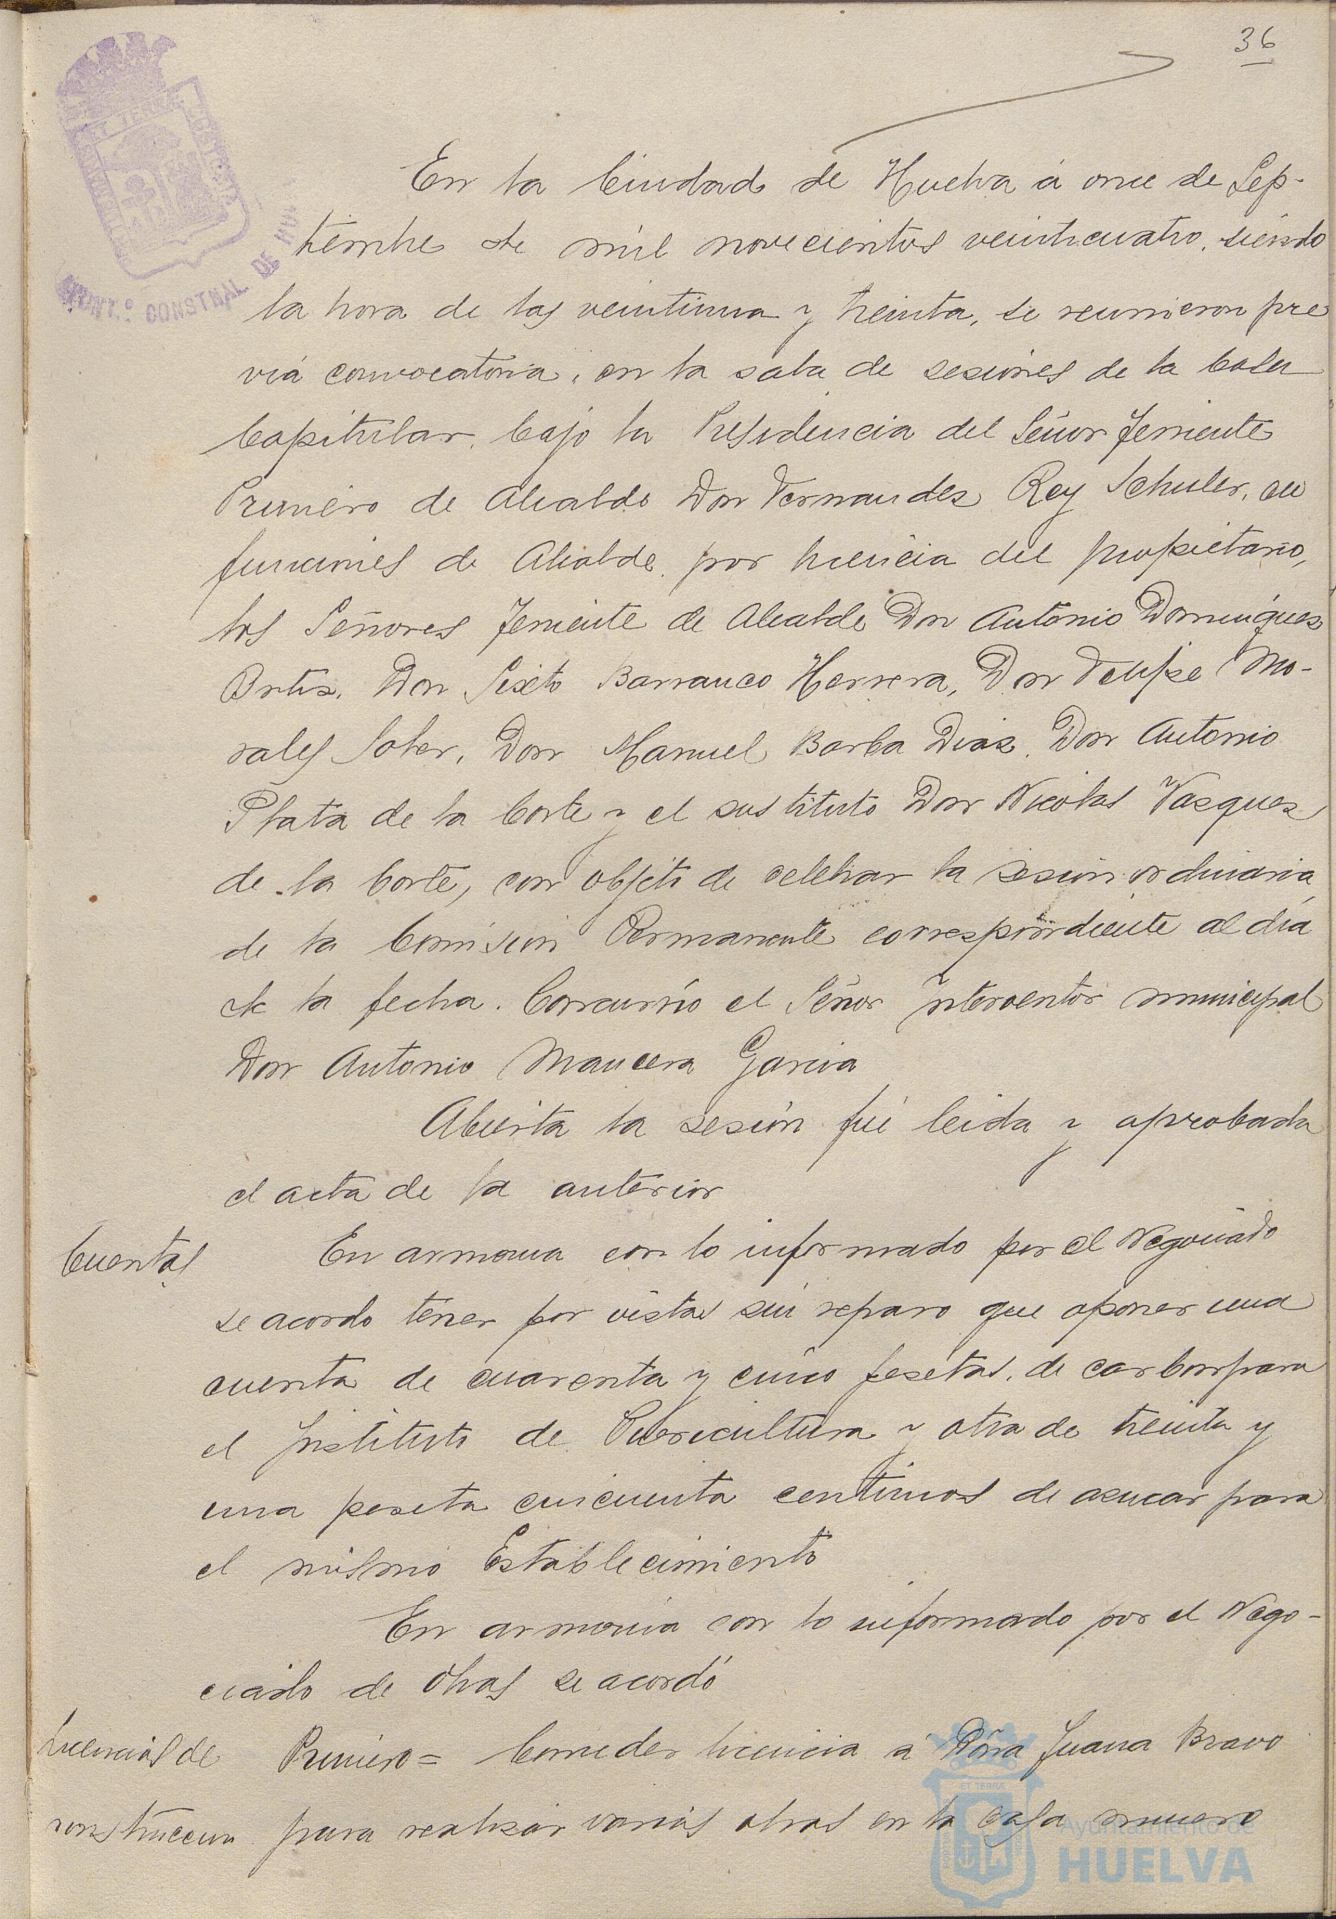 36
En la Ciudad de Huelva á once de Sep-
tiembre de mil novecientos veinticuatro, siendo
la hora de las veintiuna y treinta, se reunieron pre
via convocatoria, en la sala de sesiones de la Casa
Capitular, bajo la Presidencia del Señor Teniente
Primero de Alcalde Don Fernandes Rey Schuler, en
funciones de Alcalde por licencia del propietario,
los Señores Teniente de Alcalde Don Antonio Dominguez
Ortiz, Don Sixto Barranco Herrera, Don Felipe Mo-
rales Soler, Don Manuel Barba Diaz, Don Antonio
Plata de la Corte y el sustituto Don Nicolas Vazquez
de la Corte, con objeto de celebrar la sesion ordinaria
de la Comision Permanente correspondiente al dia
de la fecha. Concurrio el Señor Interventor municipal
Don Antonio Mancera Garcia
Abierta la sesión fué leida y aprobada
el acta de la anterior
Cuentas En armonia con lo informado por el Negociado
se acordo tener por vistas sin reparo que oponer una
cuenta de cuarenta y cinco pesetas, de carbon para
el Instituto de Puericultura y otra de treinta y
una peseta cincuenta centimos de azucar para
el mismo Establecimiento
En armonia con lo informado por el Nego-
ciado de Obras se acordó
Licencias de Primero= Conceder licencia a Doña Juana Bravo
construccion para realizar varias obras en la casa numero
AYUNT.º CONSTNAL DE
ET TERRA
Ayuntamiento de
HUELVA